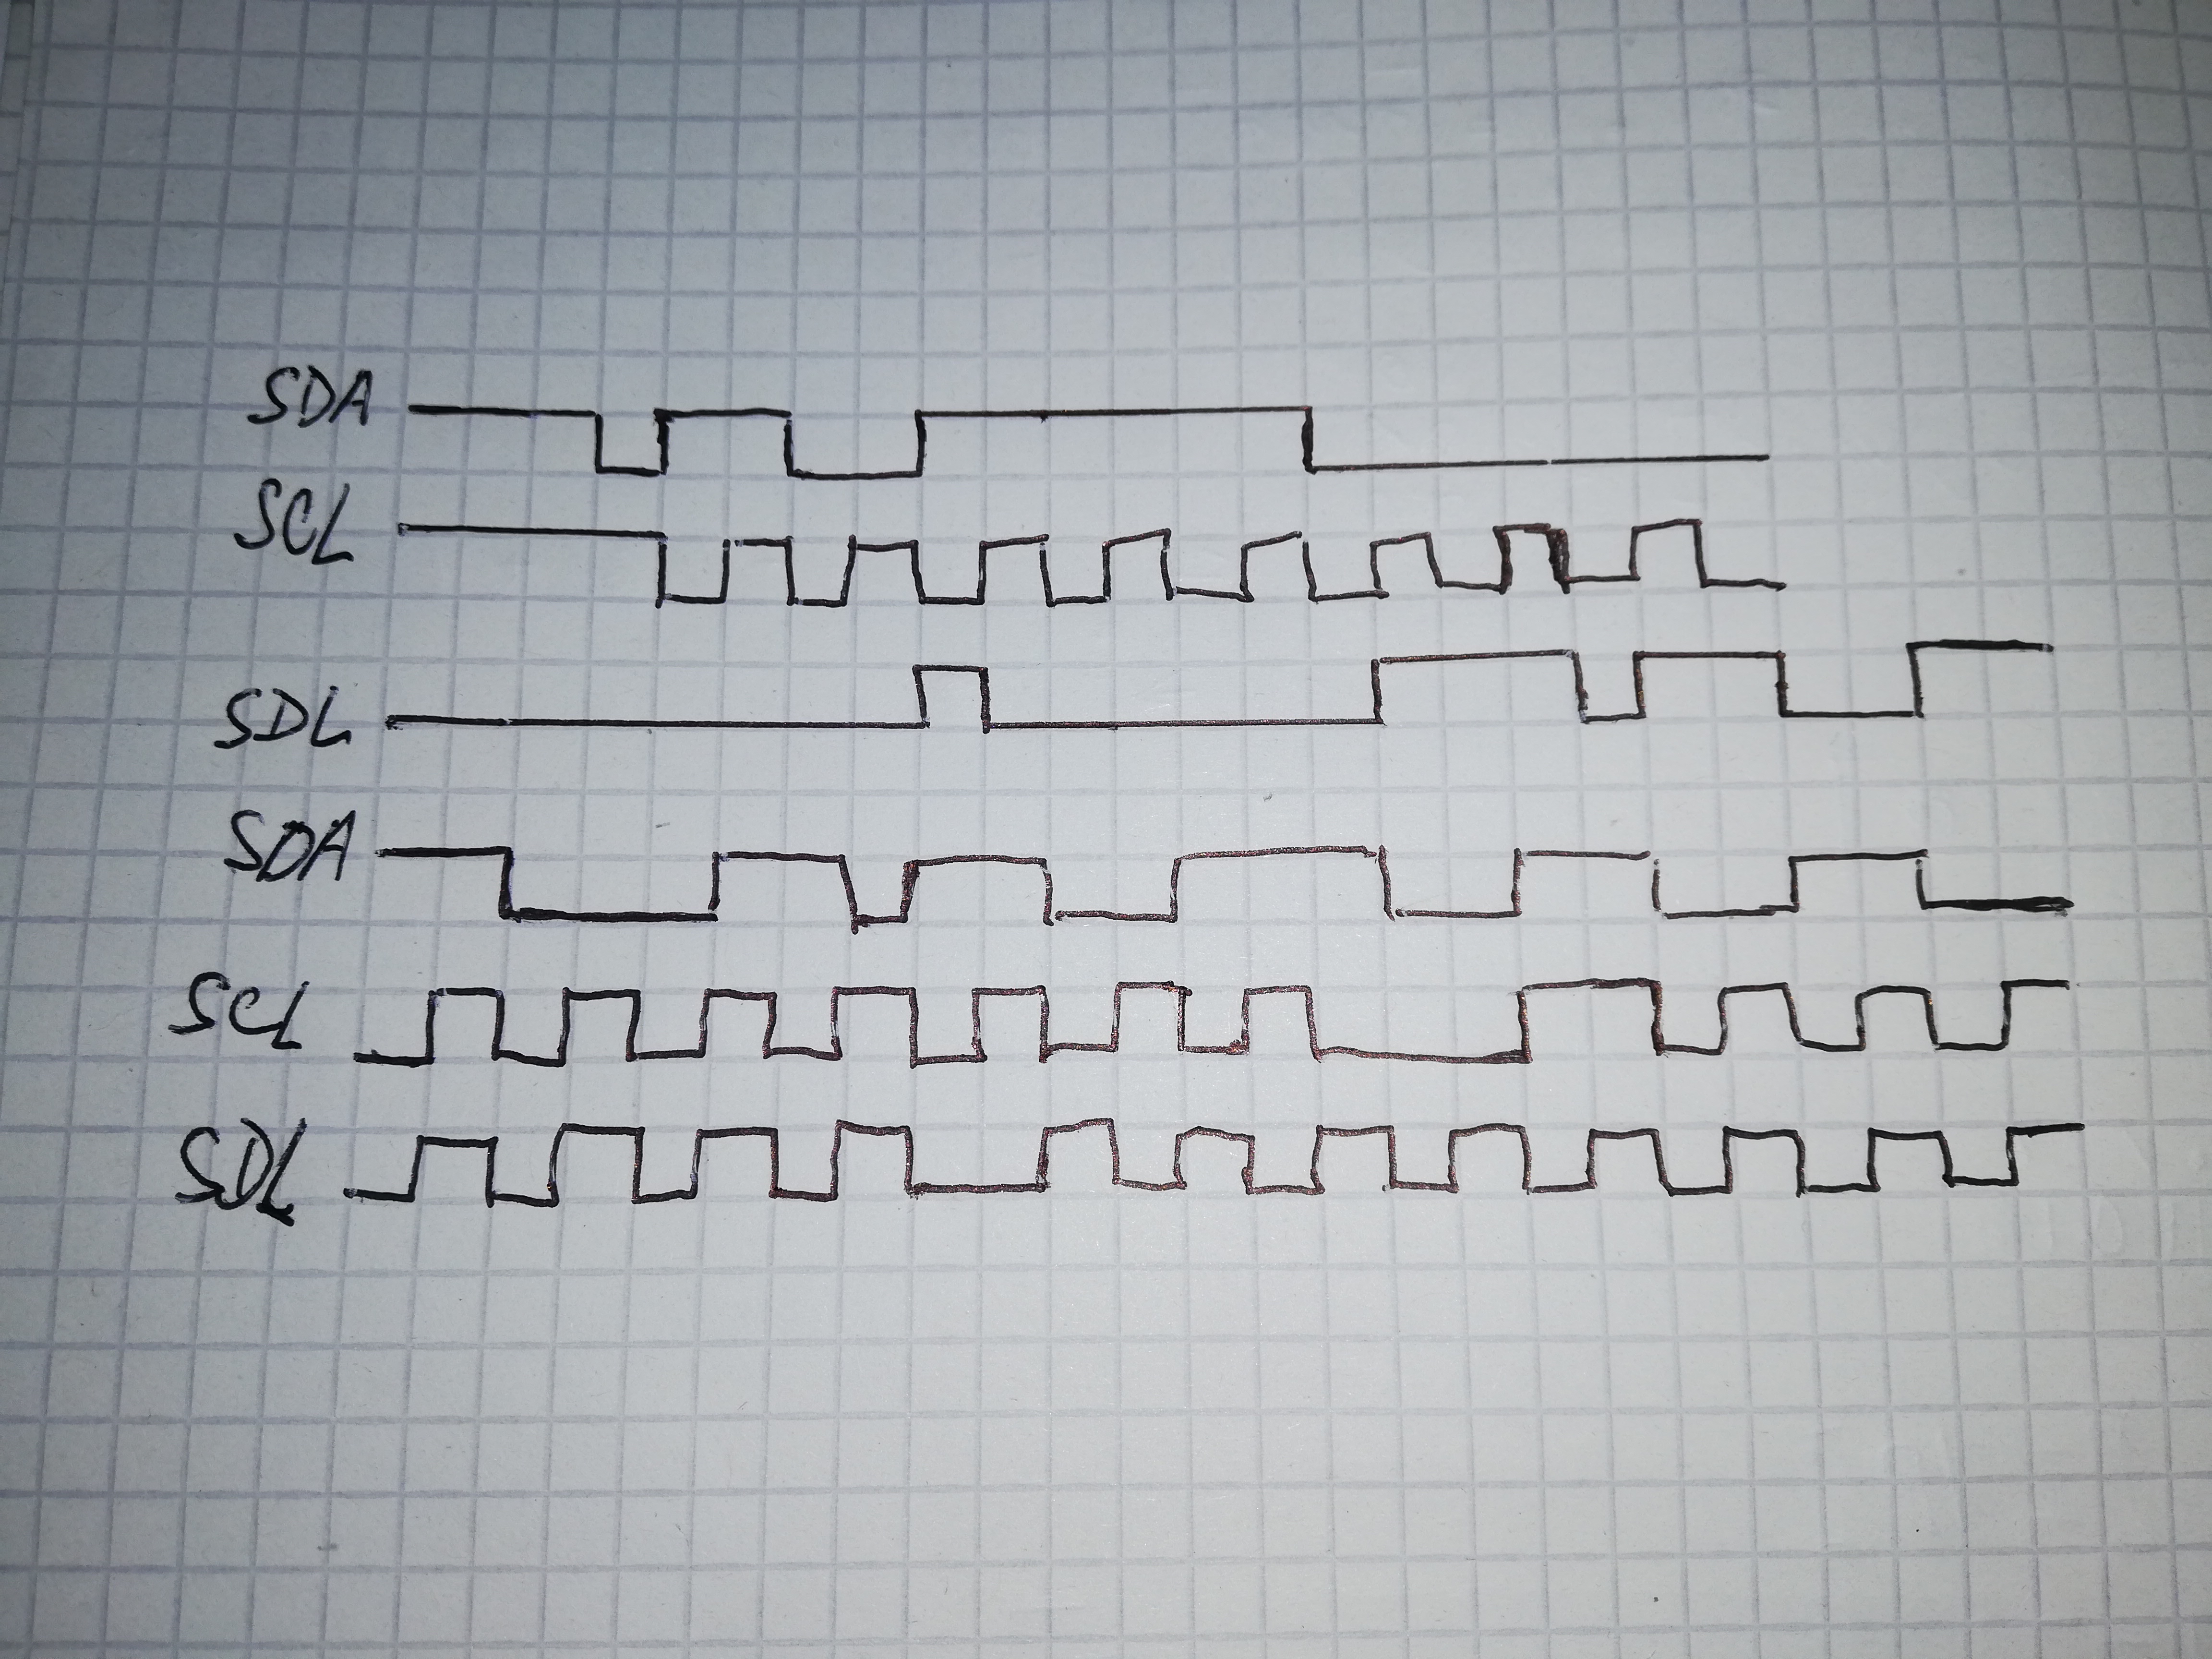 SDA
SCL
SDL
SDA
SCL
SDL